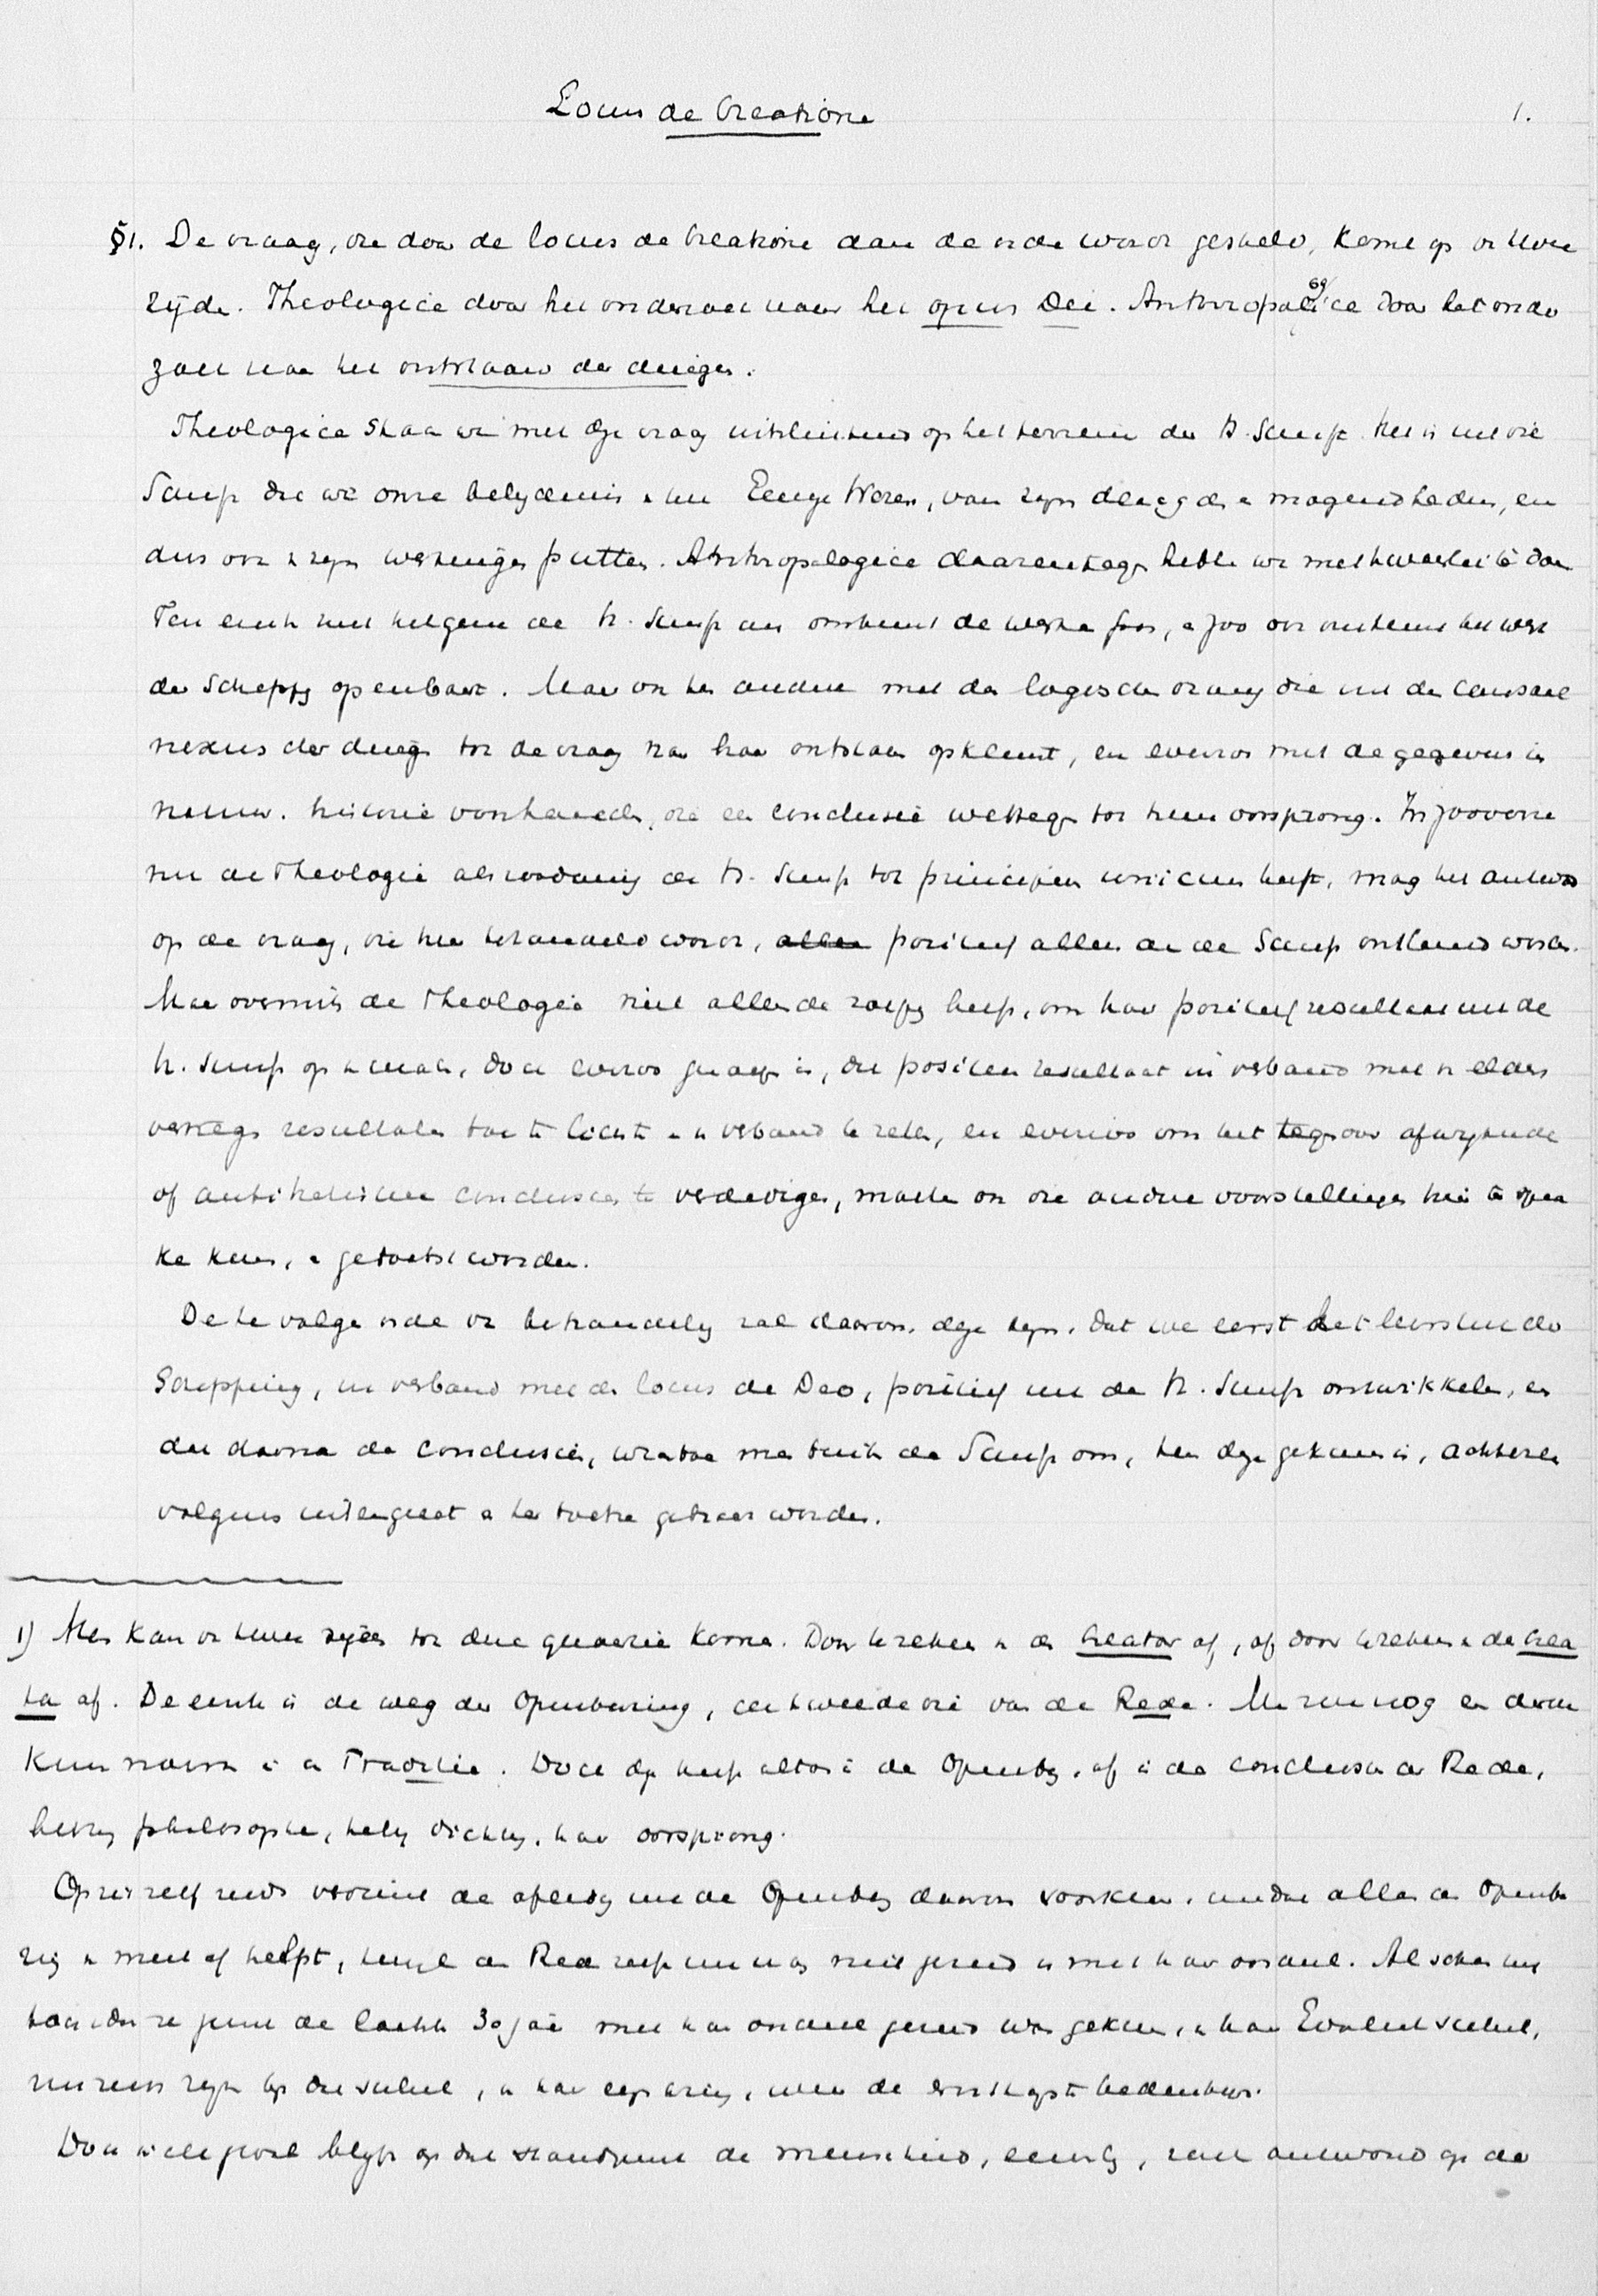 Locus de Creatione
1.
§1. De vraag, die door de locus de Creatione aan de orde wordt gesteld, komt op van twee
zijde. Theologice door het onderzoek naar het opus Dei. Anthropologice door het onder
zoek naar het ontstaan der dingen.
Theologice staan we met deze vraag uitsluitend op het terrein der H. Schrift. Het is uit die
Schrift dat we onze belydenis van het Eeuwige Wezen, van zijn deugden en mogendheden, en
dus ook van zijn werkingen putten. Anthropologice daarentegen hebben we met tweeërlei te doen
Ten eerste met hetgeen de H. Schrift ons omtrent de werken Gods, en zoo ook omtrent het werk
der Schepping openbaart. Maar ook ten andere met de logische vraag die uit den causaal
nexus der dingen tot de vraag naar haar ontstaan opklimt, en evenzoo met de gegevens in
natuur. historie voorhanden, die een conclusie wettigen tot hun oorsprong. In zooverre
nu de Theologie als zoodanig de H. Schrift tot principium unicum heeft, mag het antwoord
op de vraag, die hier behandeld wordt, positief alleen aan de Schrift ontleend worden.
Maar overmits de Theologie niet alleen de roeping heeft, om haar positief resultaat uit de
H. Schrift op te maken, doch evenzoo geroepen is, dit positieve resultaat in verband met de elders
verkregen resultaten toe te lichten en in verband te zetten, en evenzoo om het tegenover afwykende
of antithetische conclusies te verdedigen, moeten ook die andere voorstellingen hier ter spra
ke komen, en getoetst worden.
De te volgen orde van behandeling zal daarom deze zijn, dat we eerst het leerstuk der
Schepping, in verband met de locus de Deo, positief uit de H. Schrift ontwikkelen, en
dat daarna de conclusies, waartoe men buiten de Schrift om, ten deze gekomen is, achtereen
volgens uiteengezet en ter toetse gebracht worden.
1) Men kan van twee zijden tot deze quaestie komen. Door te rekenen van den Creator af, of door te rekenen van de Crea
ta af. De eerste is de weg der Openbaring, de tweede die van de Rede. Men zou nog een derde
kunnen noemen in de Traditie. Doch deze heeft altoos in de Openbaring, of in de conclusie der Rede,
hetzij philosophie, hetzij dichting, haar oorsprong.
Op zich zelf reeds verdient de afleiding uit de Openbaring daarom voorkeur, omdat alleen de Openba
ring er meê op helpt, terwijl de Rede zelf nu nog niet gereed is met haar oordeel. Al scheen het
toch dat ze juist de laatste 30 jaar met haar oordeel gereed was gekomen, in haar Evolutieleer,
nu reeds rijzen tegen die leer, in haar eigen kring, weer de ernstigste bedenkingen.
Doch in elk geval blyft op dat standpunt de menschheid, eeuwig, zonder antwoord op de